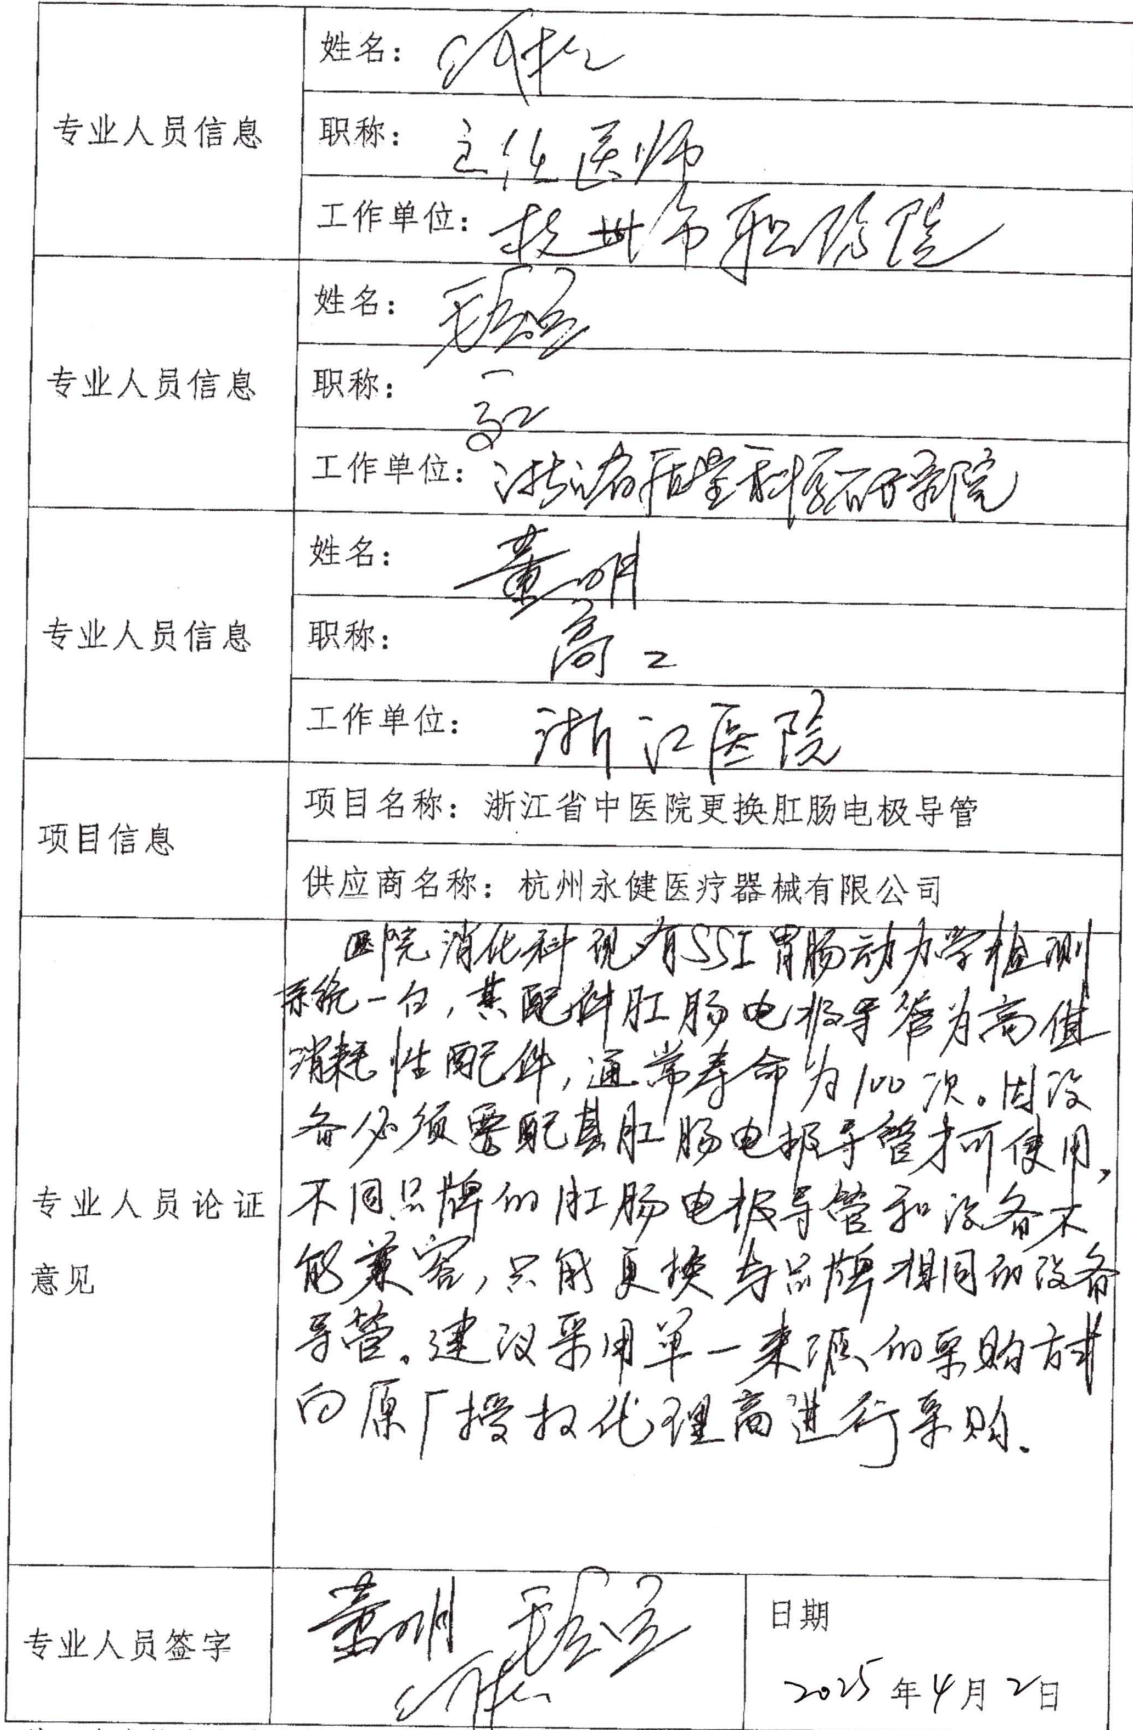 专业人员信息
姓名：
职称： 主任医师
工作单位： 杭州市职防院
专业人员信息
姓名：
职称： 高工
工作单位： 浙江省质量科学研究院
专业人员信息
姓名： 董明
职称： 高工
工作单位： 浙江医院
项目信息
项目名称：浙江省中医院更换肛肠电极导管
供应商名称：杭州永健医疗器械有限公司
专业人员论证
意见
医院消化科现有SSI胃肠动力学检测
系统一台，其配件肛肠电极导管为高值
消耗性配件，通常寿命为100次。因设
备必须要配其肛肠电极导管才可使用，
不同品牌的肛肠电极导管和设备不
能兼容，只能更换与品牌相同的设备
导管。建议采用单一来源的采购方式
向原厂授权代理商进行采购.
专业人员签字
董明
日期
2025年4月2日